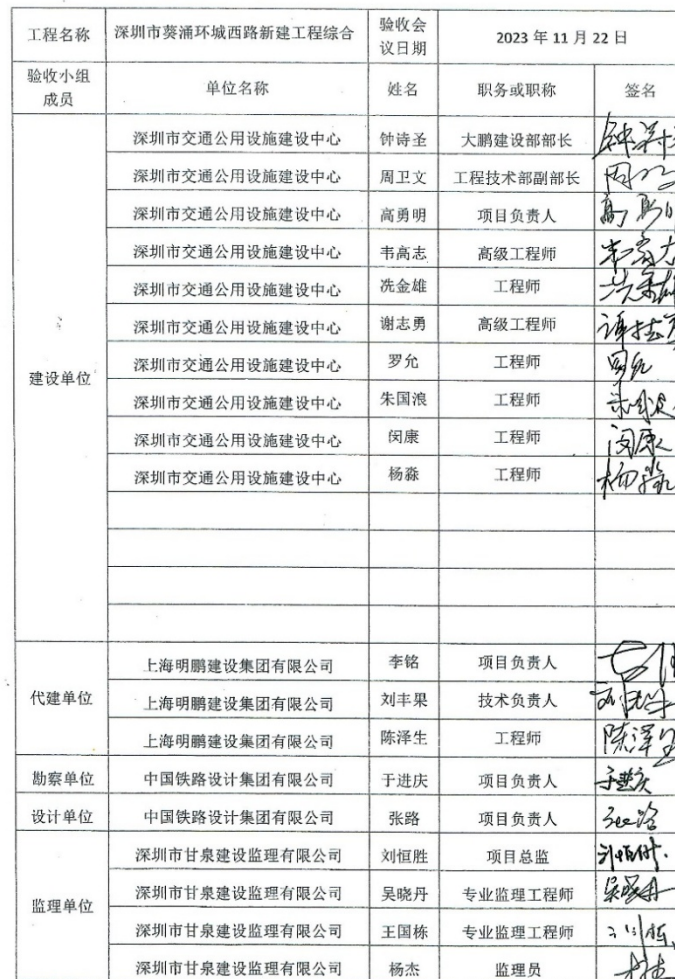 工程名称 深圳市葵涌环城西路新建工程综合 验收会议日期 2023 年 11 月 22 日
验收小组成员 单位名称 姓名 职务或职称 签名
建设单位
深圳市交通公用设施建设中心 钟诗圣 大鹏建设部部长
深圳市交通公用设施建设中心 周卫文 工程技术部副部长
深圳市交通公用设施建设中心 高勇明 项目负责人
深圳市交通公用设施建设中心 韦高志 高级工程师
深圳市交通公用设施建设中心 冼金雄 工程师
深圳市交通公用设施建设中心 谢志勇 高级工程师
深圳市交通公用设施建设中心 罗允 工程师
深圳市交通公用设施建设中心 朱国浪 工程师
深圳市交通公用设施建设中心 闵康 工程师 闵康
深圳市交通公用设施建设中心 杨淼 工程师 杨淼
代建单位
上海明鹏建设集团有限公司 李铭 项目负责人
上海明鹏建设集团有限公司 刘丰果 技术负责人
上海明鹏建设集团有限公司 陈泽生 工程师 陈泽生
勘察单位 中国铁路设计集团有限公司 于进庆 项目负责人
设计单位 中国铁路设计集团有限公司 张路 项目负责人
监理单位
深圳市甘泉建设监理有限公司 刘恒胜 项目总监
深圳市甘泉建设监理有限公司 吴晓丹 专业监理工程师 吴晓丹
深圳市甘泉建设监理有限公司 王国栋 专业监理工程师
深圳市甘泉建设监理有限公司 杨杰 监理员